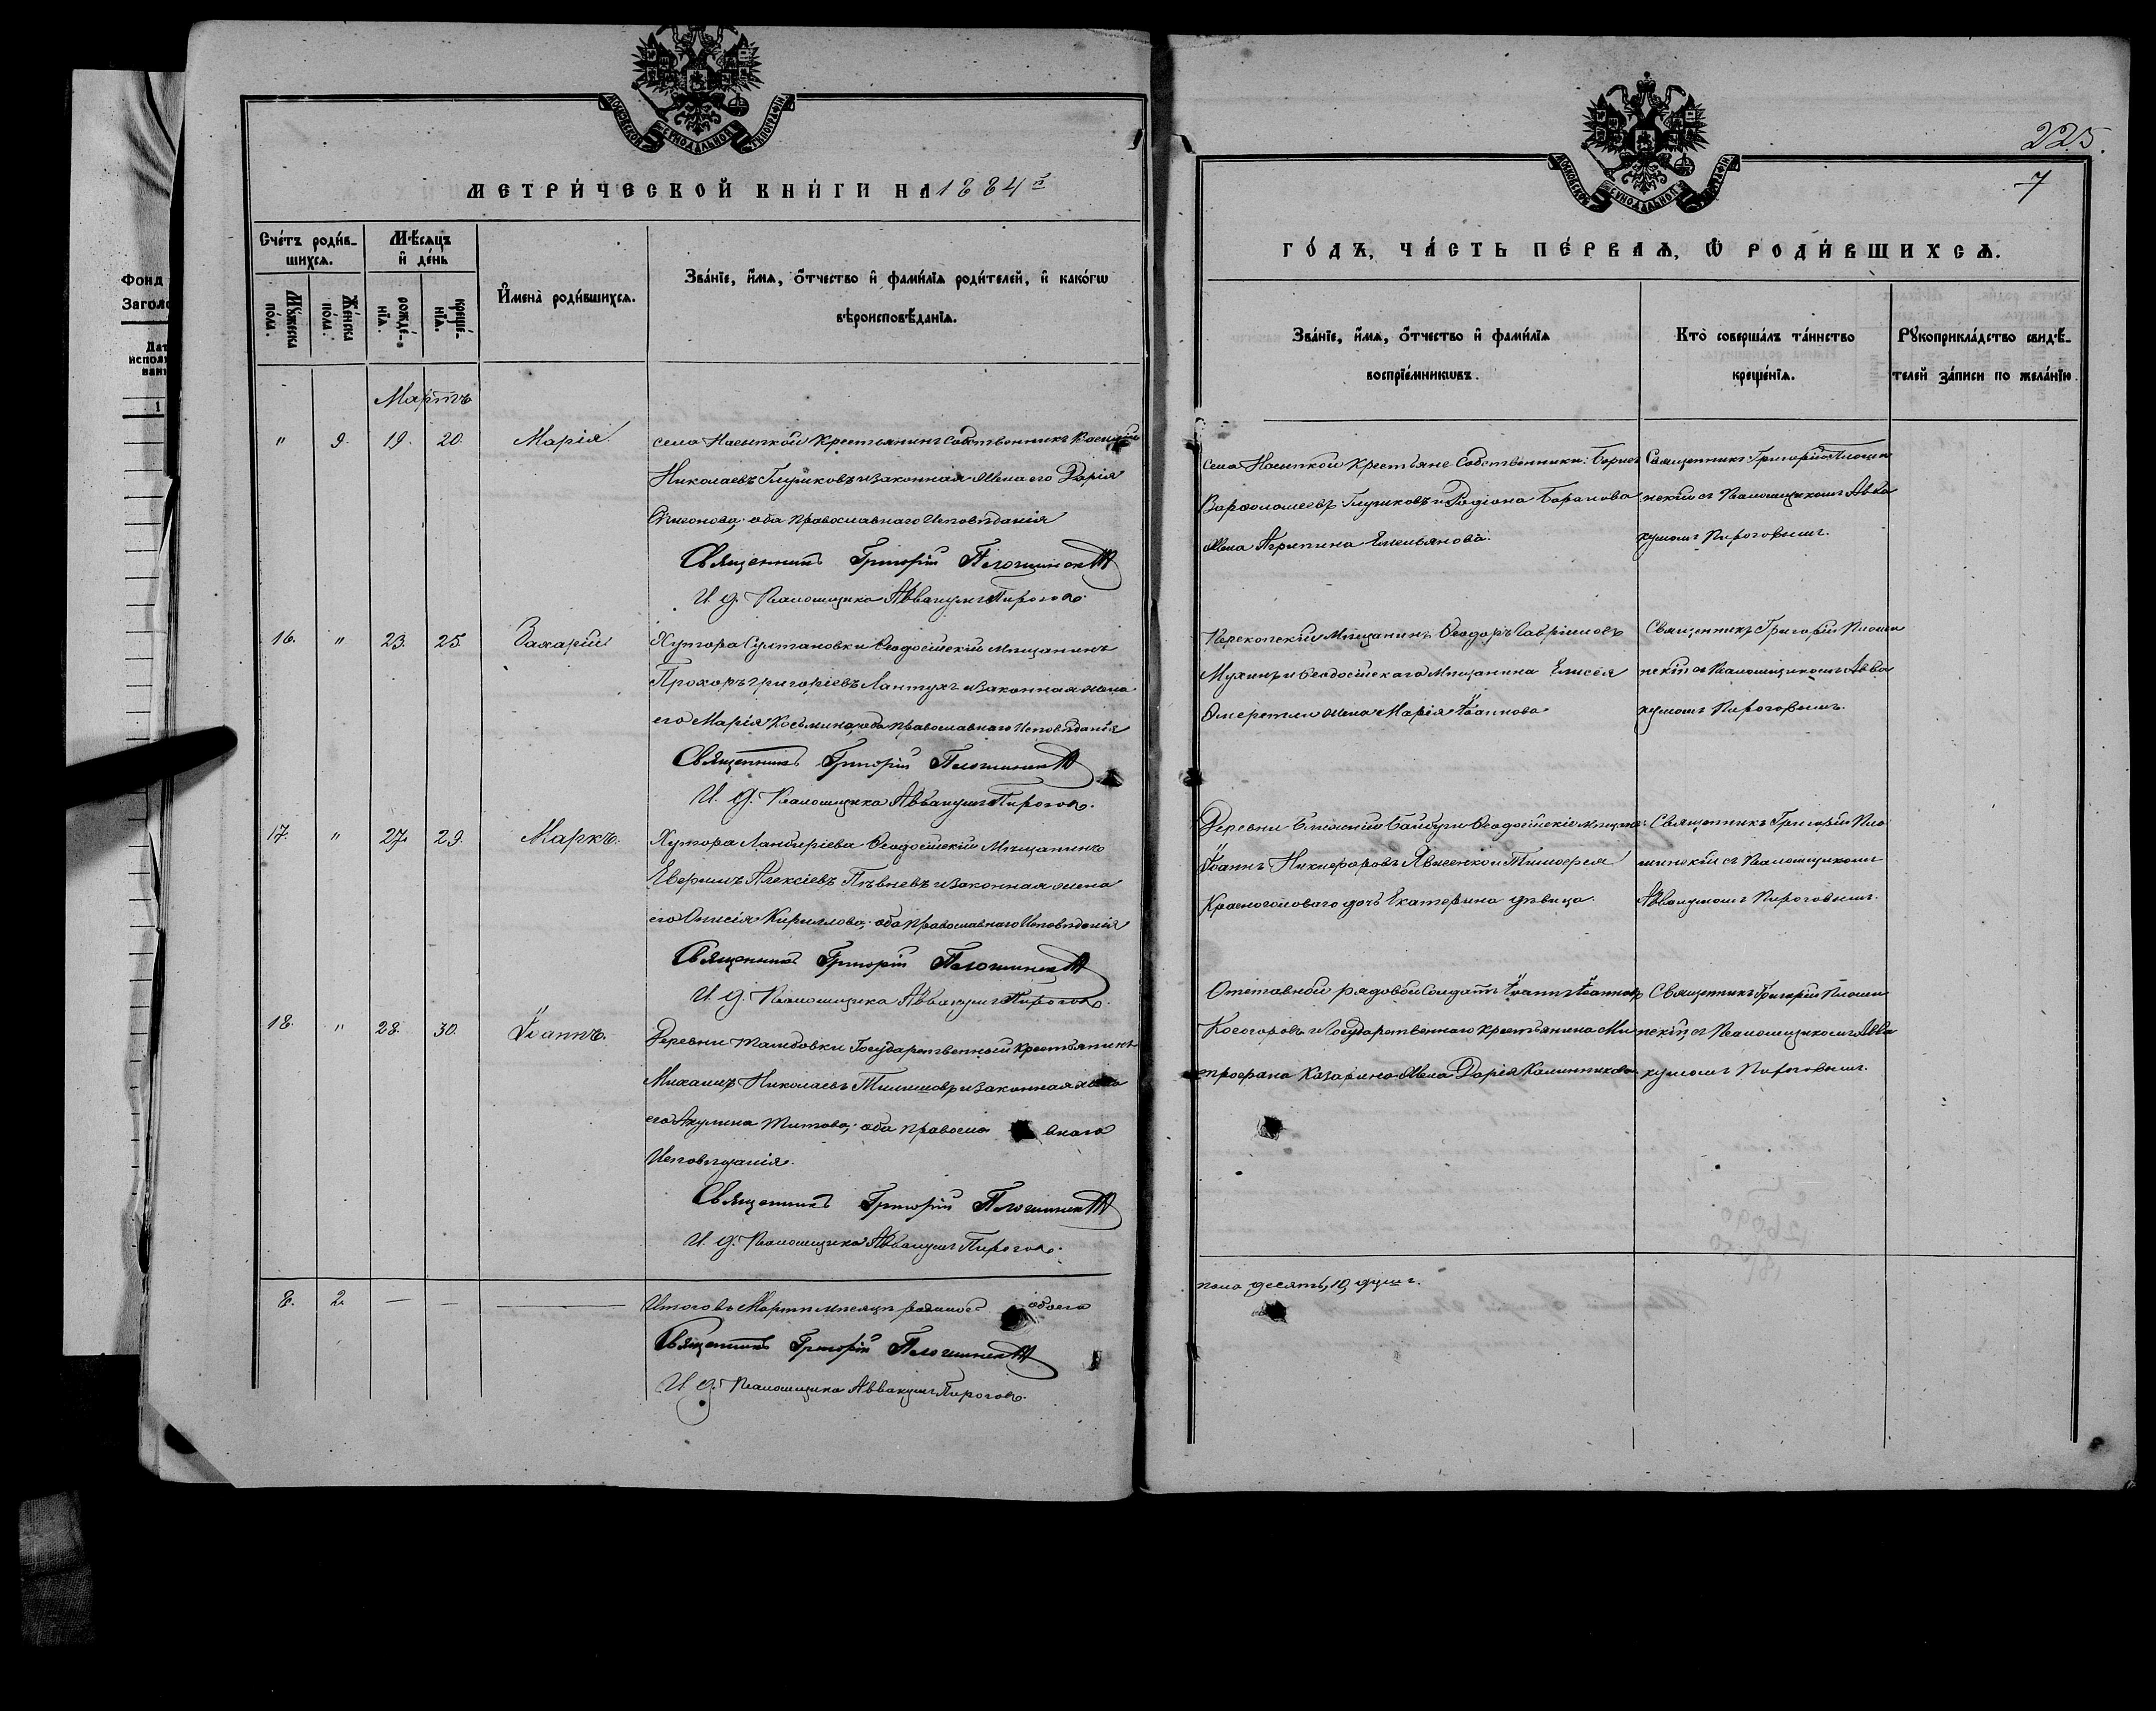 Фонд
МОСКОВСКОЙ СѴНОДАЛЬНОЙ ТИПОГРАФІИ
МЕТРИ́ЧЕСКОЙ КНИ́ГИ НА 1884й
Сче́тъ роди́в-
шихсѧ.
Мѣ́сѧцъ
и҆ де́нь
И҆мена̀ роди́вшихсѧ.
Зва́нїе, и҆́мѧ, ѻ҆́тчество и҆ фами́лїѧ роди́телей, и҆ како́гѡ
вѣроисповѣ́данїѧ.
Мꙋ́жеска
по́ла.
Же́нска
по́ла.
рожде́-
нїѧ.
креще́-
нїѧ.
Мартъ
" 9. 19. 20. Марія.
села Насыпкой Крестьянинъ Собственникъ Василій
Николаевъ Глушковъ и законная жена его Дарія
Симеонова, оба православнаго Исповѣданія
Священникъ Григорій Плошинскій
И. д. Псаломщика Аввакумъ Пироговъ.
16. " 23. 25. Захарій
Хутора Султановки Ѳеодосійскій Мѣщанинъ
Прохоръ Григоріевъ Лантухъ и законная жена
его Марія Косьмина, оба православнаго Исповѣданія
Священникъ Григорій Плошинскій
И. д. Псаломщика Аввакумъ Пироговъ.
17. " 27. 29. Маркъ.
Хутора Ланбиріева Ѳеодосійскій Мѣщанинъ
Алексіевъ Пѣвневъ и законная жена
его Кириллова, оба православнаго Исповѣданія
Священникъ Григорій Плошинскій
И. д. Псаломщика Аввакумъ Пироговъ.
18. " 28. 30. Іоаннъ.
Деревни Тамбовки Государственный Крестьянинъ
Михаилъ Николаевъ и законная жена
его Акулина Титова, оба правосла внаго
Исповѣданія.
Священникъ Григорій Плошинскій
И. д. Псаломщика Аввакумъ Пироговъ.
8. 2. — — —
Итого въ Мартѣ мѣсяцѣ обоего
Священникъ Григорій Плошинскій
И. д. Псаломщика Аввакумъ Пироговъ.
225.
7
МОСКОВСКОЙ СѴНОДАЛЬНОЙ ТИПОГРАФІИ
ГО́ДЪ, ЧА́СТЬ ПЕ́РВАѦ, Ѽ РОДИ́ВШИХСѦ.
Зва́нїе, и҆́мѧ, ѻ҆́тчество и҆ фами́лїѧ
воспрїе́мникѡвъ.
Кто̀ соверша́лъ та́инство
креще́нїѧ.
Рꙋкоприкла́дство свидѣ́-
телей за́писи по жела́нїю.
села Насыпкой Крестьяне Собственники: Борисъ
Варѳоломеевъ Глушковъ и Родіона Баранова
жена Агрипина Емельянова.
Священникъ Григорій Плоши
нскій съ Псаломщикомъ Авва
кумомъ Пироговымъ.
Перекопскій Мѣщанинъ Ѳеодоръ Гавріиловъ
Мухинъ и Ѳеодосійскаго Мѣщанина Елисея
жена Марія Іоаннова
Священникъ Григорій Плоши
нскій съ Псаломщикомъ Авва
кумомъ Пироговымъ.
Деревни Ближній Байбуги Ѳеодосійскіе мѣщане:
Іоаннъ Никифоровъ Явисенко и Тимоѳея
Красноголоваго дочь Екатерина дѣвица.
Священникъ Григорій Пло
шинскій съ Псаломщикомъ
Аввакумомъ Пироговымъ.
Отставной рядовой Солдатъ Іоаннъ Іоанновъ
Косогоровъ и Государственнаго крестьянина Ми
трофана Казарина жена Дарія Калиникова
Священникъ Григорій Плоши
нскій съ Псаломщикомъ Авва
кумомъ Пироговымъ.
пола десять, 10, душъ.